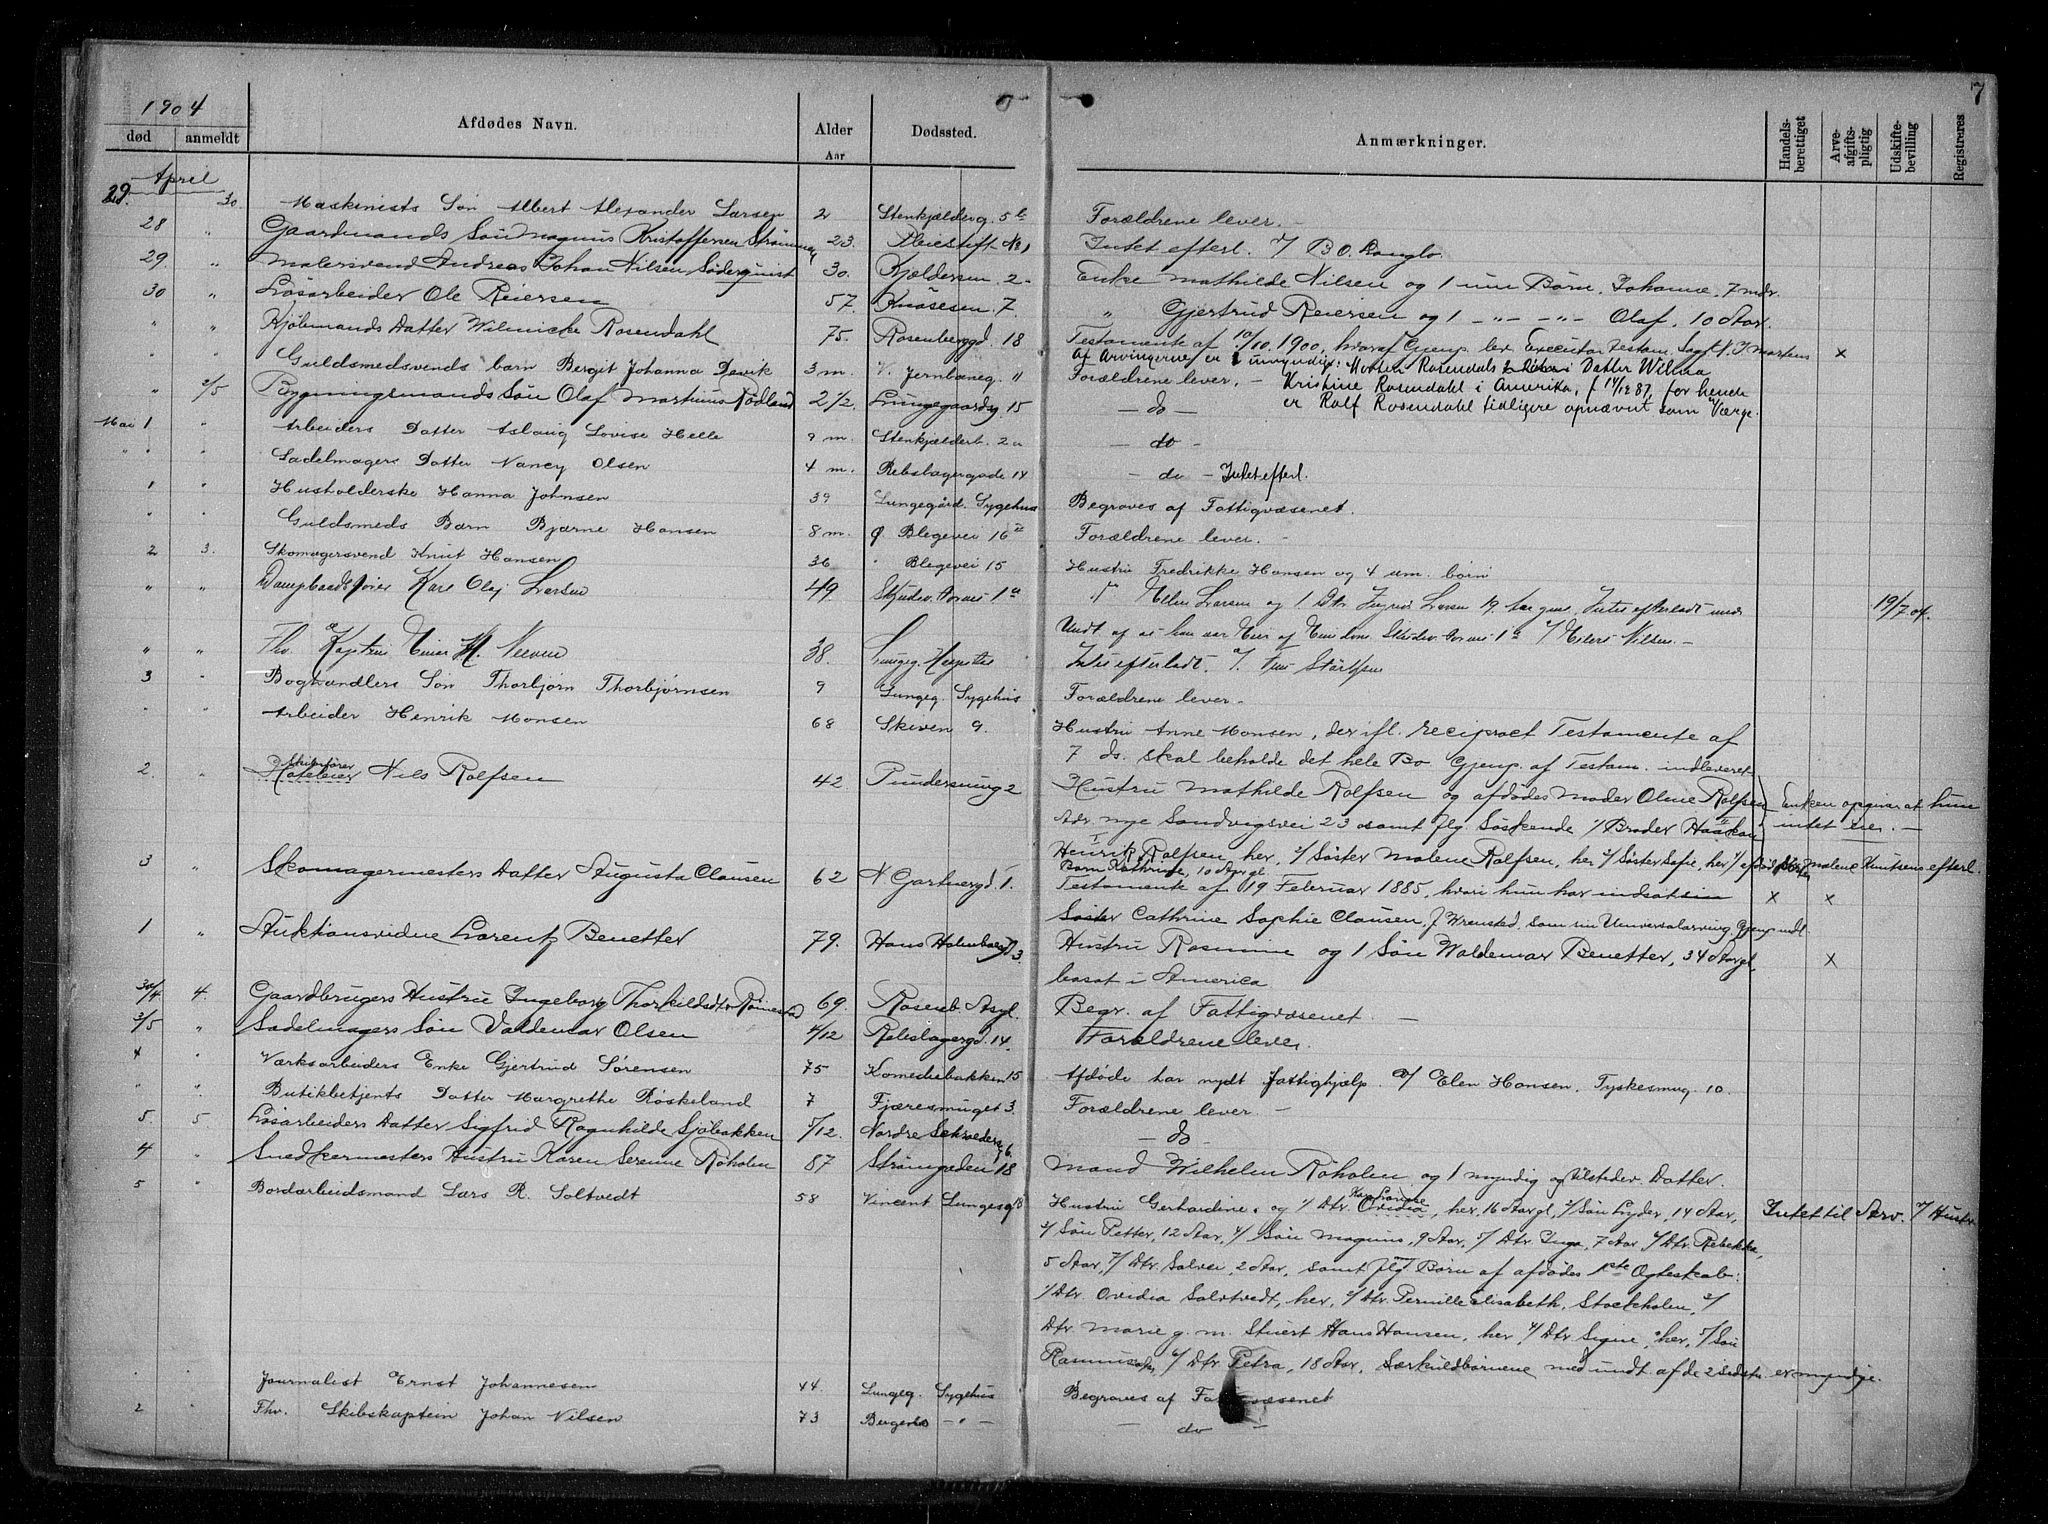 1904
død anmeldt Afdødes Navn. Alder Aar Dødssted. Anmærkninger. Handelsberettiget Arveafgiftspligtig Udskiftebevilling Registreres 7
April
29. 30. Maskinists Søn Albert Alexander Larsen 2 Stenkjælderg. 5 b Forældrene lever. -
28 " Gaardmands Søn Magnus Kristoffersen 23. Pleiestift. No 1 Intet efterl. %
29. " Malersvend Andreas Johan Nilsen Söderquist 30. Kjældersm. 2 Enke Mathilde Nilsen og 1 um Barn, Johanne, 7 mdr.
30 " Løsarbeider Ole Reiersen 57. Knøsesm 7. " Gjertrud Reiersen og 1 -"- -"- Olaf, 10 Aar.
" " Kjøbmands Datter Wilmicke Rosendahl 75. Rosenberggd. 18 Testamente af 10/10. 1900, hvoraf Gjenp. lev. Executor Testam. Sagf. N. J. Martens x
Af Arvingerne er 1 umyndig: Morten Rosendals Datter Wilma
" " Guldsmedsvends barn Bergit Johanna Devik 3 m. V. Jernbaneg. " Forældrene lever. - Kristine Rosendahl i Amerika, f 14/12 87, for hende
er Rolf Rosendahl tidligere opnævnt som Værge.
" 2/5 Bygningsmands Søn Olaf Martinus Rødland 2 1/2. Lungegaardsg 15 - do -
Mai 1 " Arbeiders Datter Aslaug Lovise Helle 9 m. Stenkjældert. 2 a - do -
" " " Sadelmagers Datter Nancy Olsen 4 m. Rebslagergade 14 - do - Intet efterl.
1 " Husholderske Hanna Johnsen 39 Lungegård. Sygehus Begraves af Fattigvæsenet.
" " Guldsmeds Barn Bjarne Hansen 8 m. Ø. Blegevei 16 Forældrene lever. -
2 3. Skomagersvend Knut Hansen 36 " Blegevei 15 Hustru Fredrikke Hansen og 4 um. børn
" " Dampbaadsfører Karl Olaj Larsen 49. 1 a " Elen Larsen og 1 Dtr. Larsen 19 Aar gml. Intet efterladt 19/7 04.
" " Fhv. Kaptein Einar 38. Lungeg. Hospital Intet efterladt. %
3 " Boghandlers Søn Thorbjørn Thorbjørnsen 9 Lungeg. Sygehus Forældrene lever. -
" " Arbeider Henrik Monsen 68 Skiven 9. Hustru Anne Monsen, der ifl. reciproct Testamente af
7 ds. skal beholde det hele Bo Gjenp. af Testam. indleveret
2. " Skibsfører Hoteleier Nils Rolfsen 42 Pundersmug 2 Hustru Mathilde Rolfsen og afdødes Moder Oline Rolfsen Enken opgiver at hun
Adr. nye Sandvigsvei 23 samt flg. Søskende 1/ Broder Haakon intet eier. -
Henrik Rolfsen her, 2/ Søster Malene Rolfsen, her 3/ Søster Sofie, her 4/ afdød Søster Malene Knutsens efterl.
Barn Kathrine, 10 Aar gl.
3 " Skomagermesters Datter Augusta Clausen 62 N Gartnergd. 1. Testamente af 19 Februar 1885, hvori hun har indsat sin x x
Søster Cathrine Sophie Clausen, f Wrensted, som sin Universalarving. Gjenp. indl.
1 " Auktionsvidne Lorentz Benetter 79. Hans Holmboesg 3. Hustru Rasmine og 1 Søn Waldemar Benetter, 34 Aar gl, x
bosat i America
30/4 4. Gaardbrugers Hustru Ingeborg Thorkildsdtr 69. Rosenb. Asyl. Begr. af Fattigvæsenet. -
3/5 " Sadelmagers Søn Valdemar Olsen 4/12 Rebslagergd. 14. Forældrene lever.
4 " Værksarbeiders Enke Gjertrud Sørensen 75 Komediebakken 15 Afdøde har nydt Fattighjælp. % Elen Hansen, Tyskesmug. 10.
" " Butikbetjents Datter Margrethe Røskeland 7 Fjæresmuget 3. Forældrene lever. -
5. 5 Løsarbeiders Datter Sigfrid Ragnhilde Sjøbakken 5/12. Nordre Skrædderg 6. - do -
4 " Snedkermesters Hustru Karen Serenne Røholm 87 Strømgaden 18 Mand Wilhelm Røholm og 1 myndig og tilstedev. Datter.
5 " Bordarbeidsmand Lars R. Soltvedt 58 Vincent Lungesg 8 Hustru Gerhardine og 1/ Dtr. Ovidia, her, 16 Aar gl, 2/ Søn Lyder, 14 Aar, Intet til Arv. % Hustr
3/ Søn Petter, 12 Aar, 4/ Søn Magnus, 9 Aar, 5/ Dtr. Inga, 7 Aar 6/ Dtr. Rebekka,
5 Aar, 7/ Dtr. Salvei, 2 Aar, samt flg Børn af afdødes 1ste Ægteskab:
1/ Dtr. Ovidia Soltvedt, her, 2/ Dtr. Pernille Elisabeth, Stockholm, 3/
Dtr. Marie g. m. Stuert Hans Hansen, her 4/ Dtr Signe, her, 5/ Søn
Rasmus 6/ Dtr. Petra, 18 Aar. Særkuldbørnene med undt af de 2 sidste er myndige.
" " Journalist Ernst Johannesen 44 Lungeg. Sygehus Begraves af Fattigvæsenet
2 " Fhv. Skibskaptein Johan Nilsen 73 Bergens -"- - do -